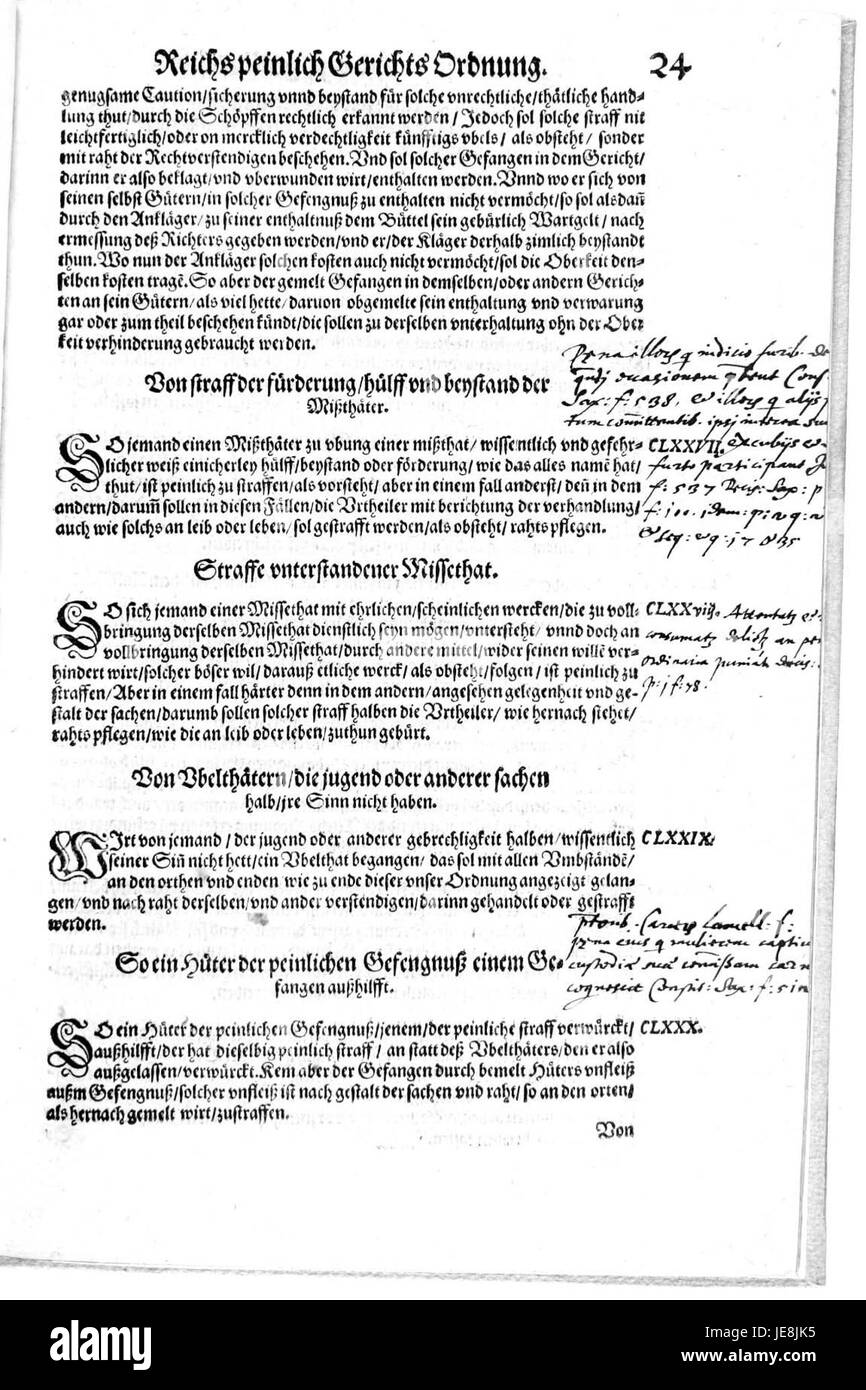 Reichs peinlich Gerichts Ordnung. 24
genugsame Caution/sicherung vnnd beystand für solche vnrechtliche/thätliche hand-
lung thut/durch die Schöpffen rechtlich erkannt werden/ Jedoch sol solche straff nit
leichtfertiglich/oder on mercklich verdechtligkeit künfftigs vbels/ als obsteht/ sonder
mit raht der Rechtverstendigen beschehen. Vnd sol solcher Gefangen in dem Gericht/
darinn er also beklagt/vnd vberwunden wirt/enthalten werden. Vnnd wo er sich von
seinen selbst Gütern/in solcher Gefengnuß zu enthalten nicht vermöcht/so sol als dañ
durch den Ankläger/zu seiner enthaltnuß dem Büttel sein gebürlich Wartgelt/ nach
ermessung deß Richters gegeben werden/vnd er/der Kläger derhalb zimlich beystandt
thun. Wo nun der Ankläger solchen kosten auch nicht vermöcht/sol die Oberkeit den-
selben kosten tragē. So aber der gemelt Gefangen in demselben/oder andern Gerich-
ten an sein Gütern/als viel hette/daruon obgemelte sein enthaltung vnd verwarung
gar oder zum theil beschehen kündt/die sollen zu derselben vnterhaltung ohn der Ober
keit verhinderung gebraucht werden.
Von straff der fürderung/hülff vnd beystand der
Mißthäter.
SO jemand einen Mißthäter zu vbung einer mißthat/wissentlich vnd gefehr- CLXXVII.
licher weiß einicherley hülff/beystand oder förderung/wie das alles namē hat/
thut/ist peinlich zu straffen/als vorsteht/aber in einem fall anderst/deñ in dem
andern/darum̄ sollen in diesen Fällen/die Vrtheiler mit berichtung der verhandlung/
auch wie solchs an leib oder leben/sol gestrafft werden/als obsteht/rahts pflegen.
Straffe vnterstandener Missethat.
SO sich jemand einer Missethat mit ehrlichen/scheinlichen wercken/die zu voll- CLXXviij.
bringung derselben Missethat dienstlich seyn mögen/vntersteht/vnnd doch an
vollbringung derselben Missethat/durch andere mittel/wider seinen willē ver-
hindert wirt/solcher böser wil/darauß etliche werck/als obsteht/folgen/ist peinlich zu
straffen/Aber in einem fall härter denn in dem andern/angesehen gelegenheit vnd ge-
stalt der sachen/darumb sollen solcher straff halben die Vrtheiler/wie hernach stehet/
rahts pflegen/wie die an leib oder leben/zuthun gebürt.
Von Vbelthätern/die jugend oder anderer sachen
halb/jre Sinn nicht haben.
WIrt von jemand/der jugend oder anderer gebrechligkeit halben/wissentlich CLXXIX.
seiner Siñ nicht hett/ein Vbelthat begangen/das sol mit allen Vmbständē/
an den orthen vnd enden wie zu ende dieser vnser Ordnung angezeigt gelan-
gen/vnd nach raht derselben/vnd ander verstendigen/darinn gehandelt oder gestrafft
werden.
So ein Hüter der peinlichen Gefengnuß einem Ge-
fangen außhilfft.
SO ein Hüter der peinlichen Gefengnuß/jenem/der peinliche straff verwürckt/ CLXXX.
außhilfft/der hat dieselbig peinlich straff/an statt deß Vbelthäters/den er also
außgelassen/verwürckt. Kem aber der Gefangen durch bemelt Hüters vnfleiß
außm Gefengnuß/solcher vnfleiß ist nach gestalt der sachen vnd raht/so an den orten/
als hernach gemelt wirt/zustraffen.
Von
alamy
Image ID: JE8JK5
www.alamy.com